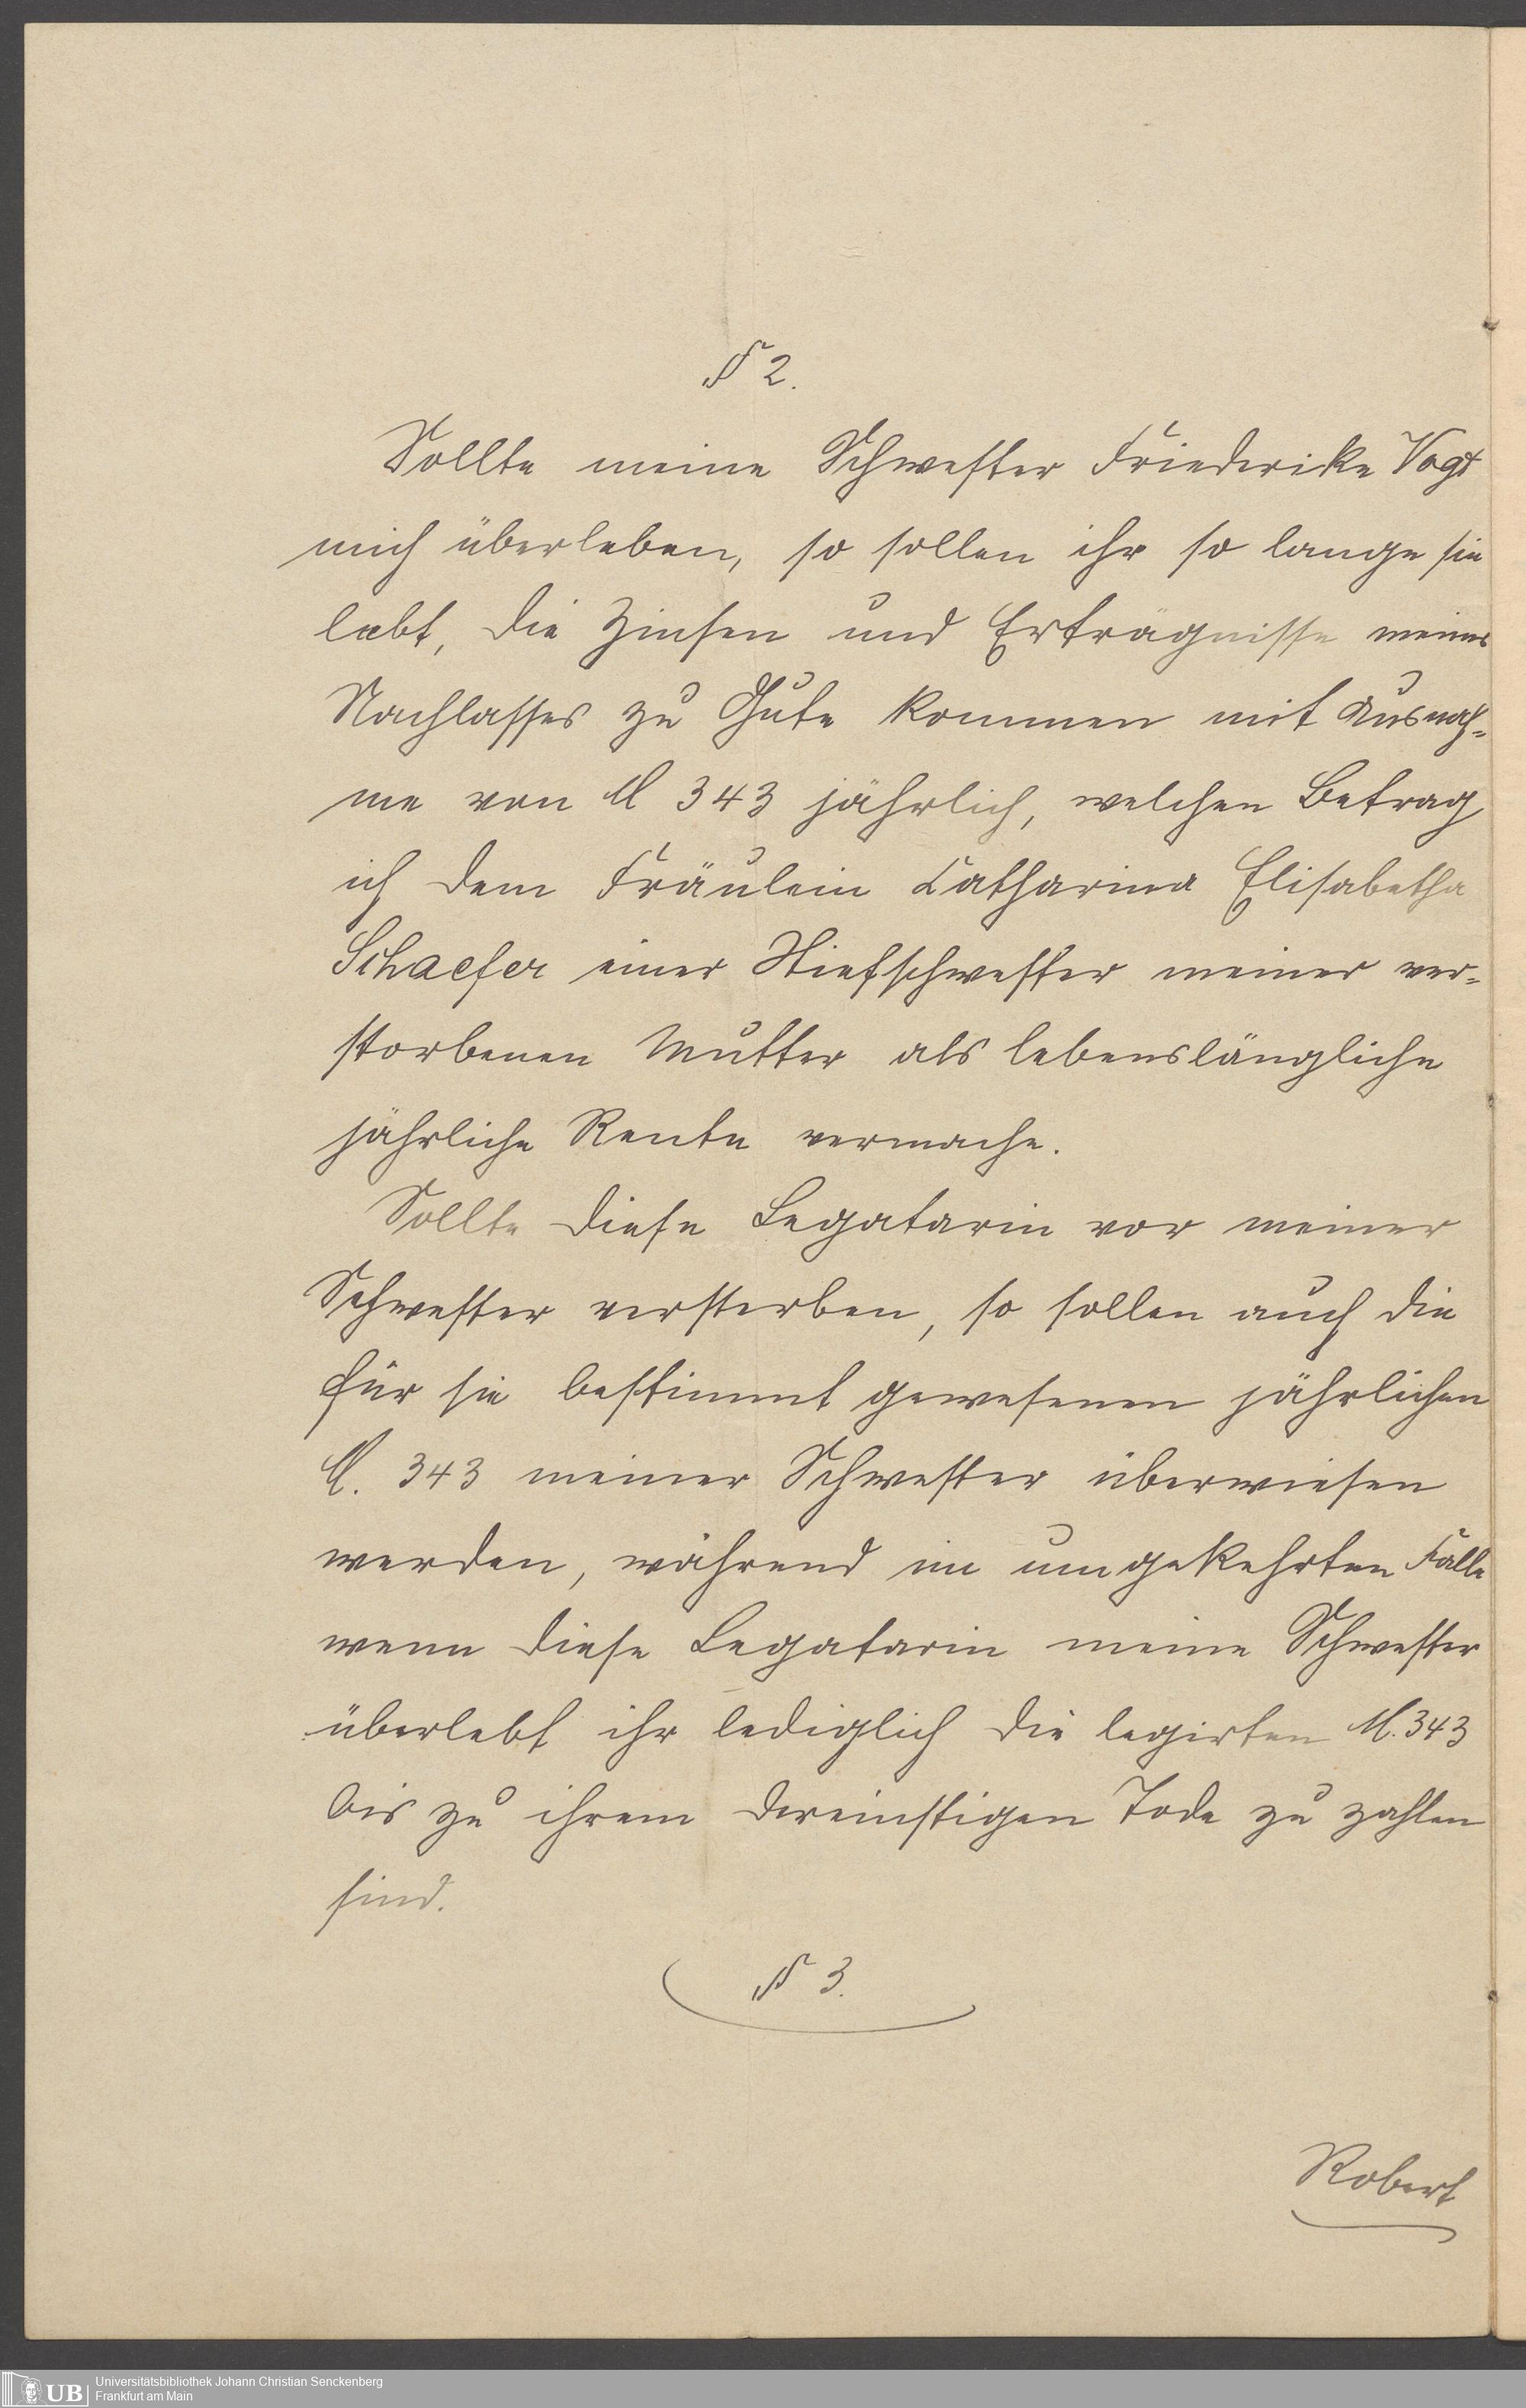 § 2.
Sollte meine Schwester Friederike Vogt
mich überleben, so sollen ihr so lange sie
lebt, die Zinsen und Erträgnisse meines
Nachlasses zu Gute kommen mit Ausnah=
me von M 343 jährlich, welchen Betrag
ich dem Fräulein Catharina Elisabetha
Schaefer einer Stiefschwester meiner ver=
storbenen Mutter als lebenslängliche
jährliche Rente vermache.
Sollte diese Legatarin vor meiner
Schwester versterben, so sollen auch die
für sie bestimmt gewesenen jährlichen
M. 343 meiner Schwester überwiesen
werden, während im umgekehrten Falle
wenn diese Legatarin meine Schwester
überlebt ihr lediglich die legirten M. 343
bis zu ihrem dereinstigen Tode zu zahlen
sind.
§ 3.
Robert
UB
Universitätsbibliothek Johann Christian Senckenberg
Frankfurt am Main